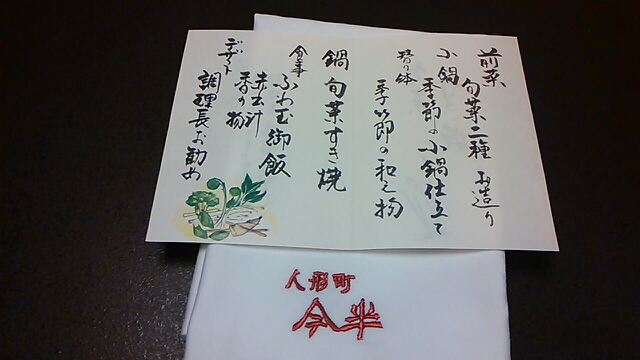 前菜
旬菜二種 お造り
小鍋
季節の小鍋仕立て
捏り鉢
季節の和え物
鍋 旬菜すき焼
食事
ふわ玉御飯
赤出汁
香の物
デザート
調理長お勧め
人形町
今半